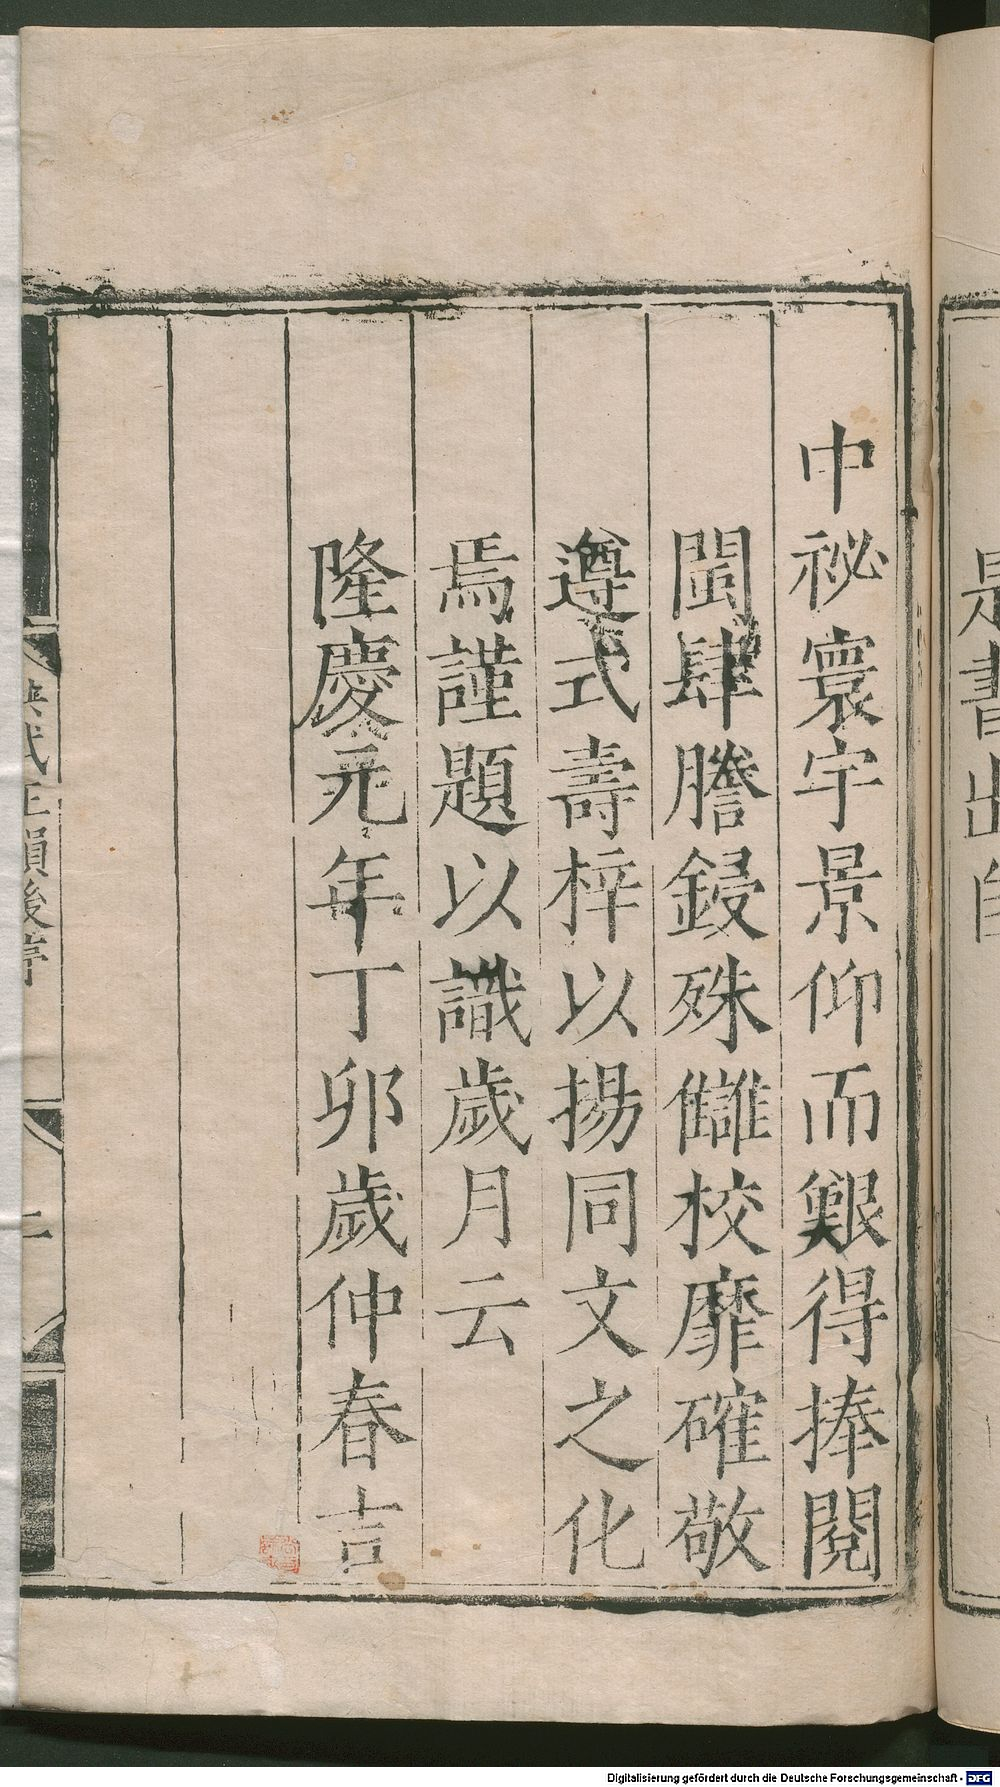 是書出自
中祕寰宇景仰而艱得捧閱
閩肆謄鋟殊讎校靡確敬
遵式壽梓以揚同文之化
焉謹題以識歲月云
隆慶元年丁卯歲仲春吉
洪武正韻後序
二
Digitalisierung gefördert durch die Deutsche Forschungsgemeinschaft - DFG